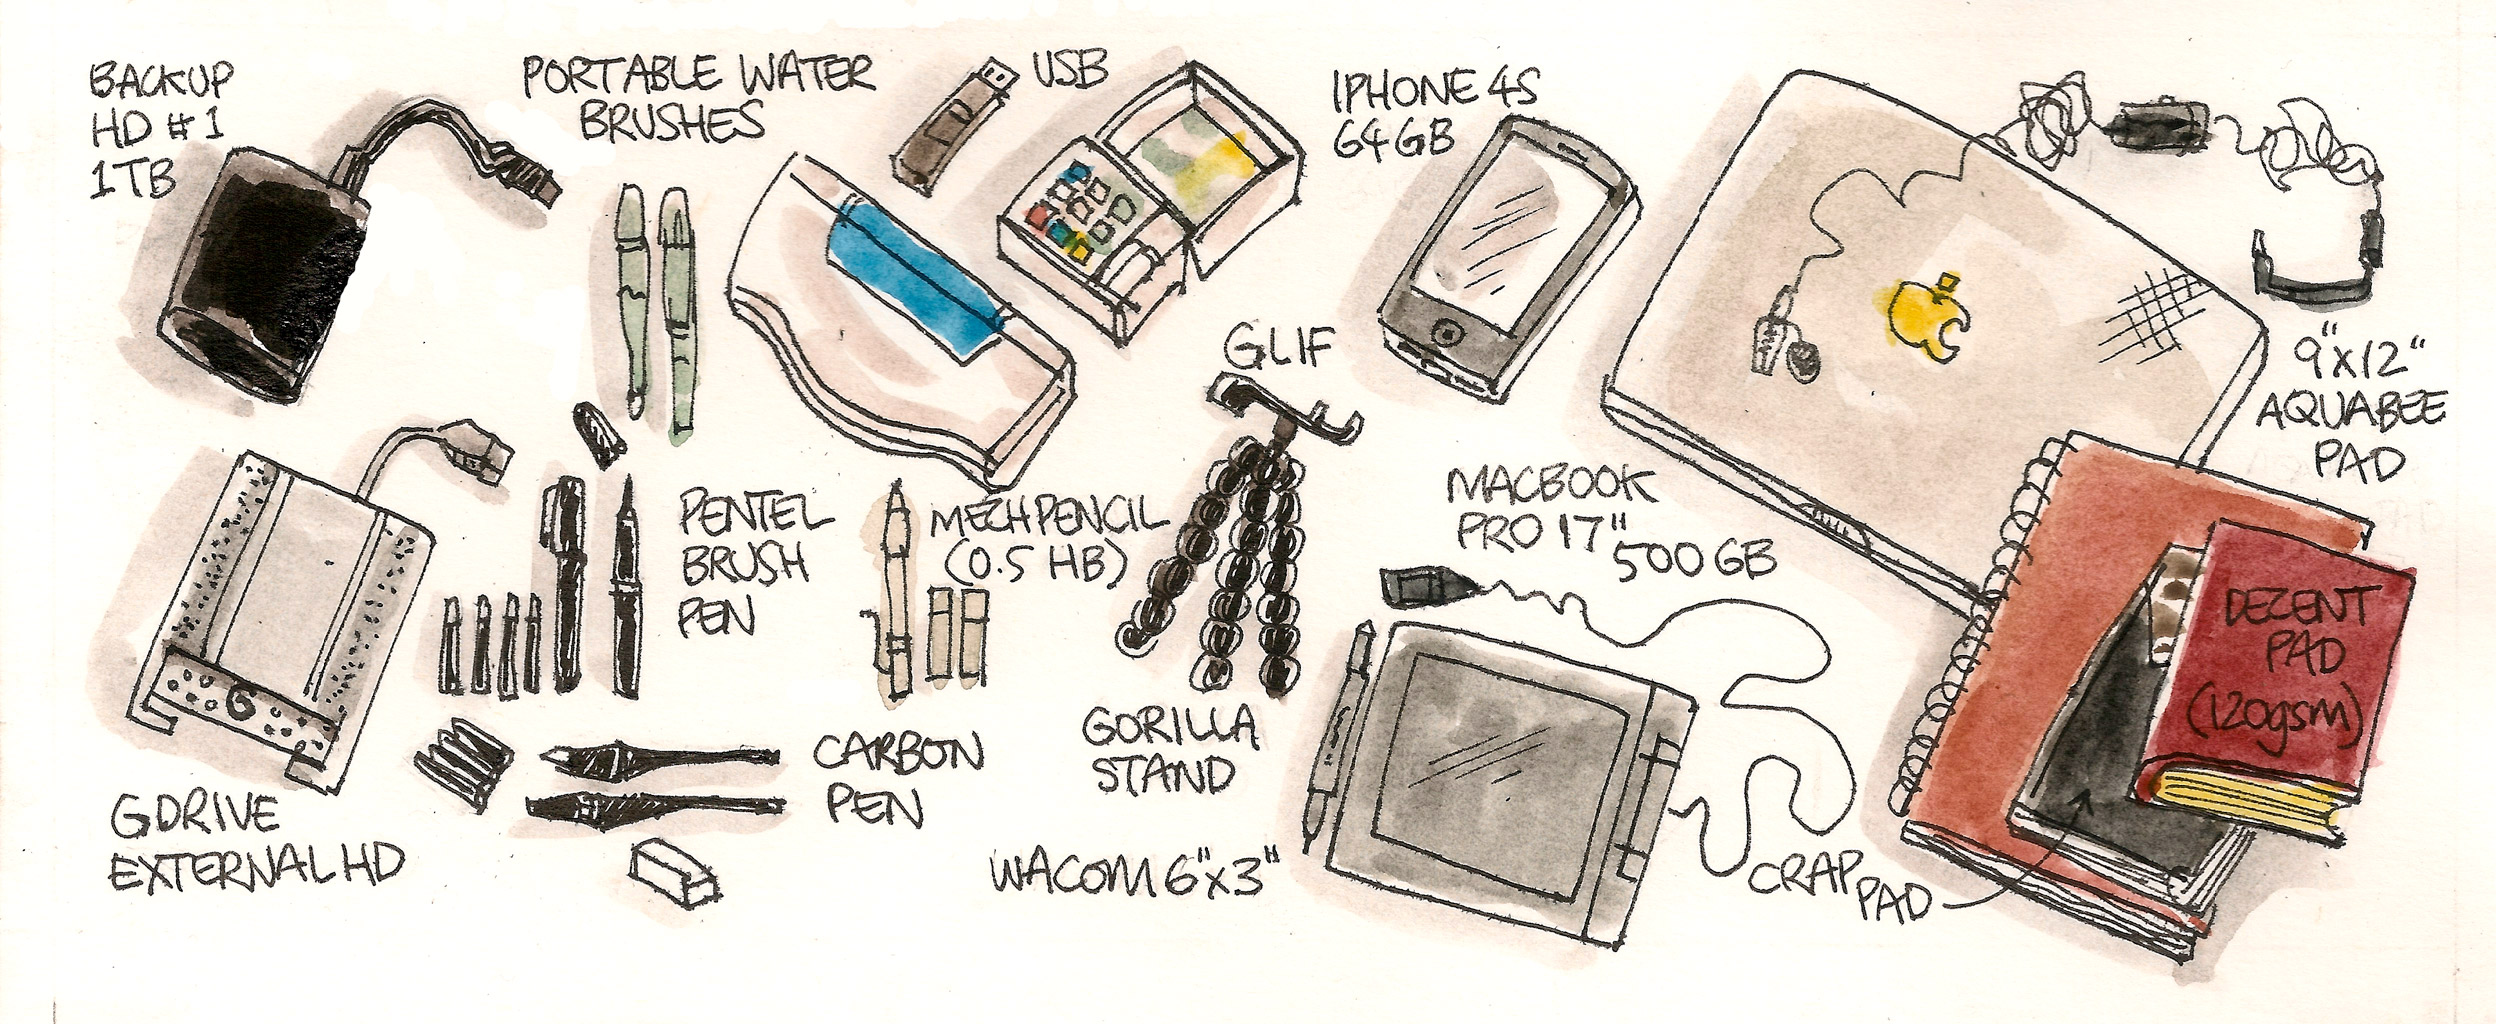 BACKUP
HD #1
1TB
PORTABLE WATER
BRUSHES
USB
IPHONE 4S
64GB
GLIF
9"X12"
AQUABEE
PAD
PENTEL
BRUSH
PEN
MECH PENCIL
(0.5 HB)
MACBOOK
PRO 17"
500GB
DECENT
PAD
(120gsm)
G
GDRIVE
EXTERNAL HD
CARBON
PEN
GORILLA
STAND
WACOM 6"x3"
CRAP
PAD